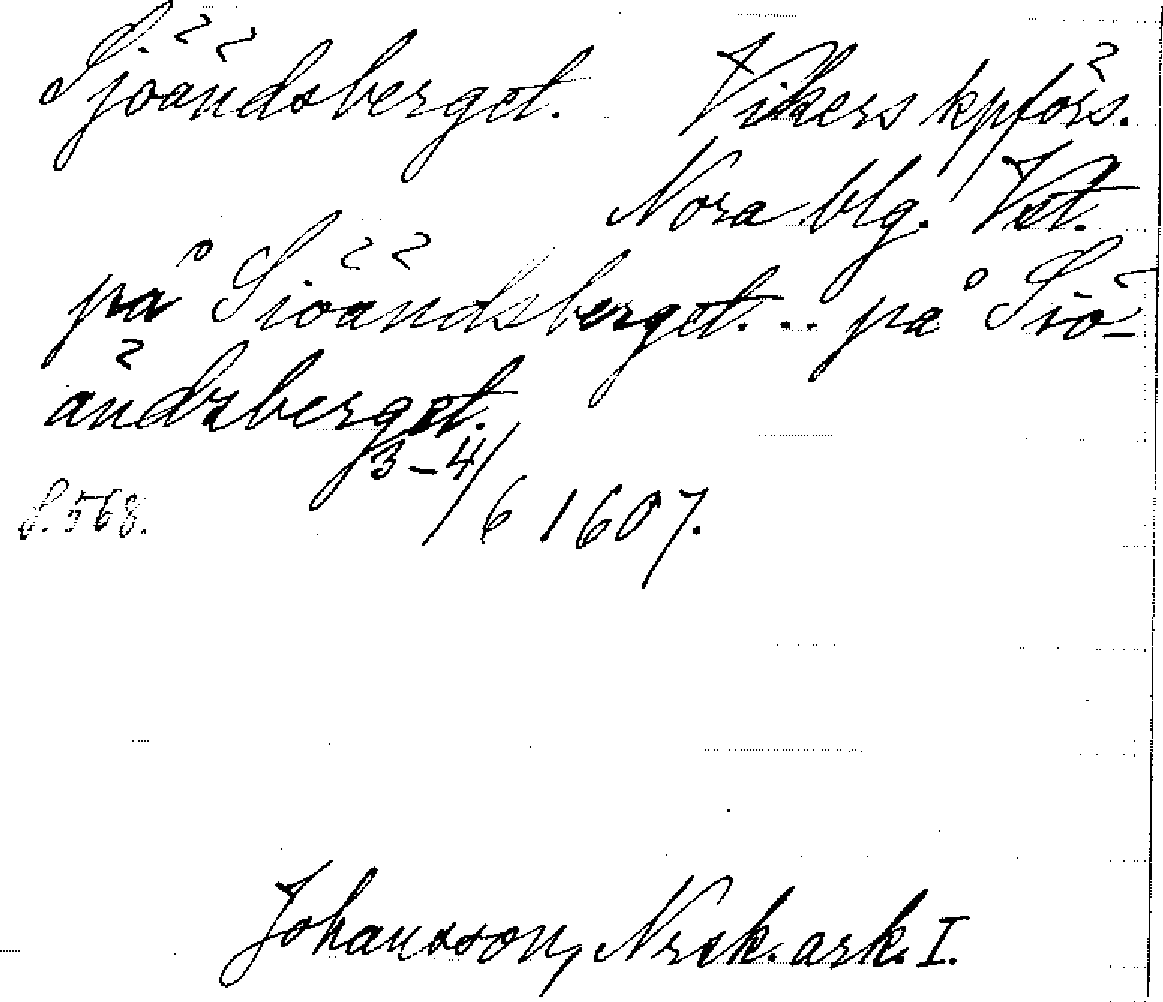 Sjöändsberget. Vikers kpförs.
Nora blg. Vstl.
på Siöändsberget... på Siö-
ändsberget.
3-4/6 1607.
S. 568.
Johansson, Nrck. ark. I.